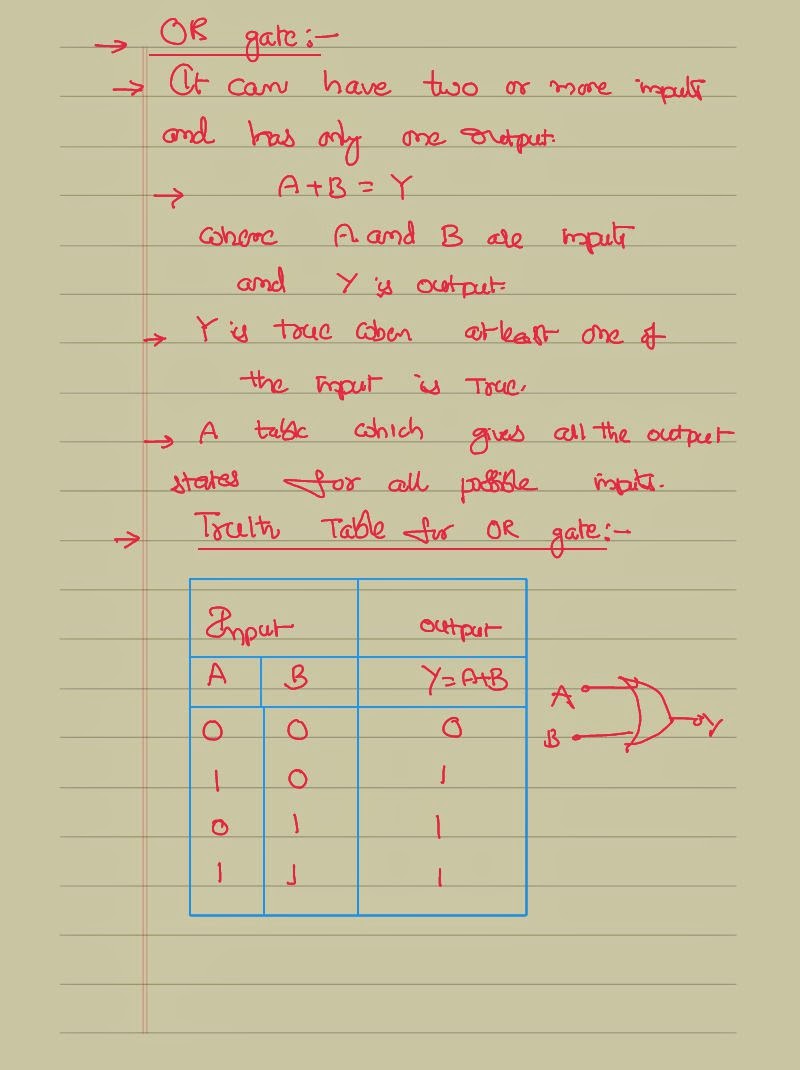 → OR gate:-
→ It can have two or more inputs
and has only one output.
→ A+B = Y
where A and B are inputs
and Y is output.
→ Y is true when atleast one of
the input is True.
→ A table which gives all the output
states for all possible inputs.
→ Truth Table for OR gate:-
Input output
A B Y=A+B
0 0 0
1 0 1
0 1 1
1 1 1
A
B
Y